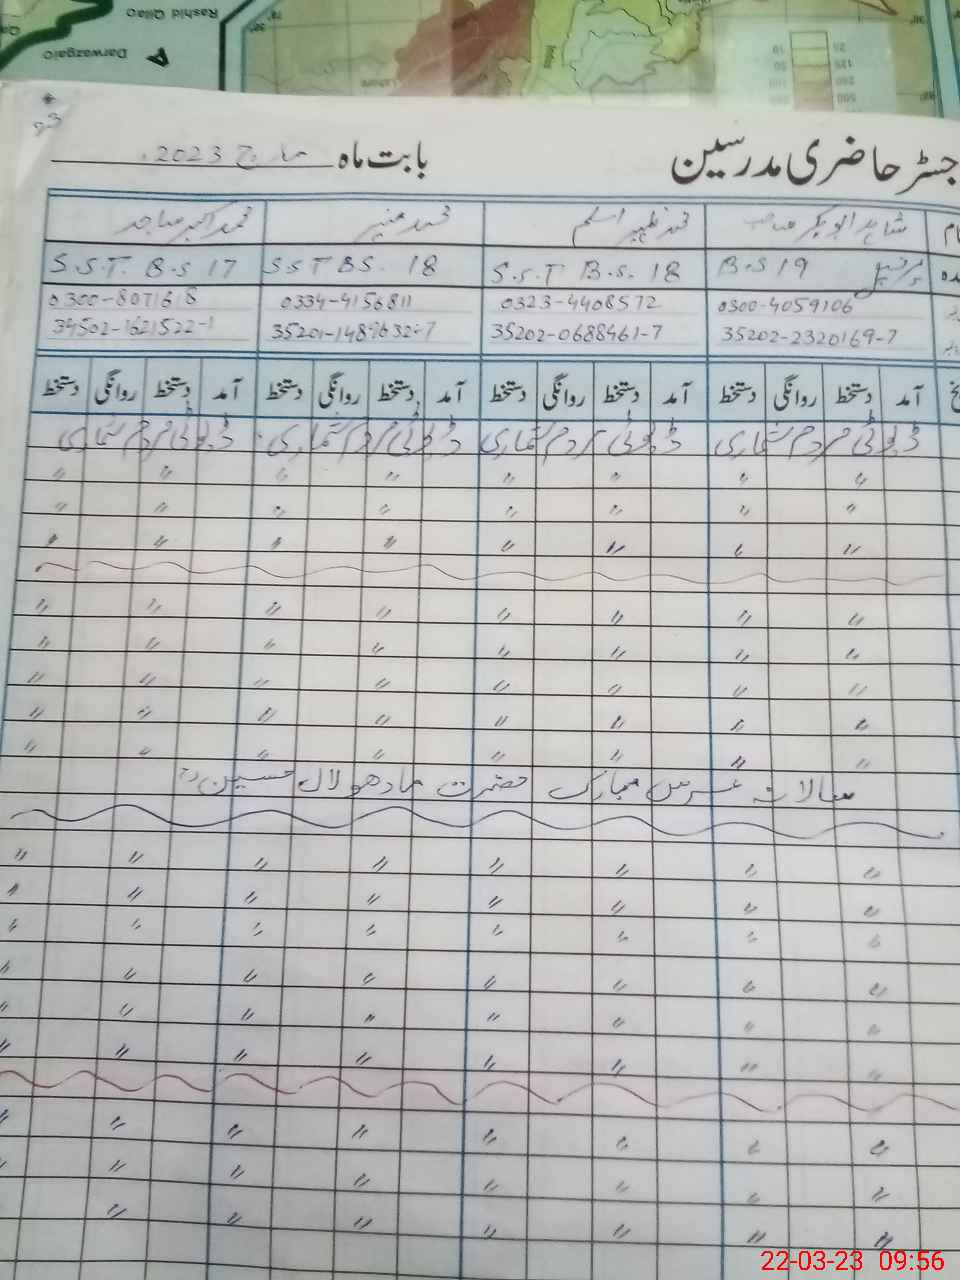 Rashid Qilao
Darwazgaio
جسٹر حاضری مدرسین بابت ماہ مارچ 2023
شاہد ابوبکر صاحب محمد ظہیر اسلم محمد منیر محمد اکبر ساجد
پرنسپل B.S 19 S.S.T B.S. 18 SST BS. 18 S.S.T. B.S 17
0300-4059106 0323-4408572 0334-4156811 0300-8071618
35202-2320169-7 35202-0688461-7 34502-1621522-1
آمد دستخط روانگی دستخط آمد دستخط روانگی دستخط آمد دستخط روانگی دستخط آمد دستخط روانگی دستخط
ڈیوٹی مردم شماری ڈیوٹی مردم شماری ڈیوٹی مردم شماری ڈیوٹی مردم شماری
〃 〃 〃 〃 〃 〃 〃 〃
〃 〃 〃 〃 〃 〃 〃 〃
〃 〃 〃 〃 〃 〃 〃 〃
〃 〃 〃 〃 〃 〃 〃 〃
〃 〃 〃 〃 〃 〃 〃 〃
〃 〃 〃 〃 〃 〃 〃 〃
〃 〃 〃 〃 〃 〃 〃 〃
〃 〃 〃 〃 〃 〃 〃 〃
سالانہ عرس مبارک حضرت مادھو لال حسینؒ
〃 〃 〃 〃 〃 〃 〃 〃
〃 〃 〃 〃 〃 〃 〃 〃
〃 〃 〃 〃 〃 〃 〃 〃
〃 〃 〃 〃 〃 〃 〃 〃
〃 〃 〃 〃 〃 〃 〃 〃
〃 〃 〃 〃 〃 〃 〃 〃
〃 〃 〃 〃 〃 〃 〃 〃
〃 〃 〃 〃 〃 〃 〃 〃
〃 〃 〃 〃 〃 〃 〃
22-03-23 09:56